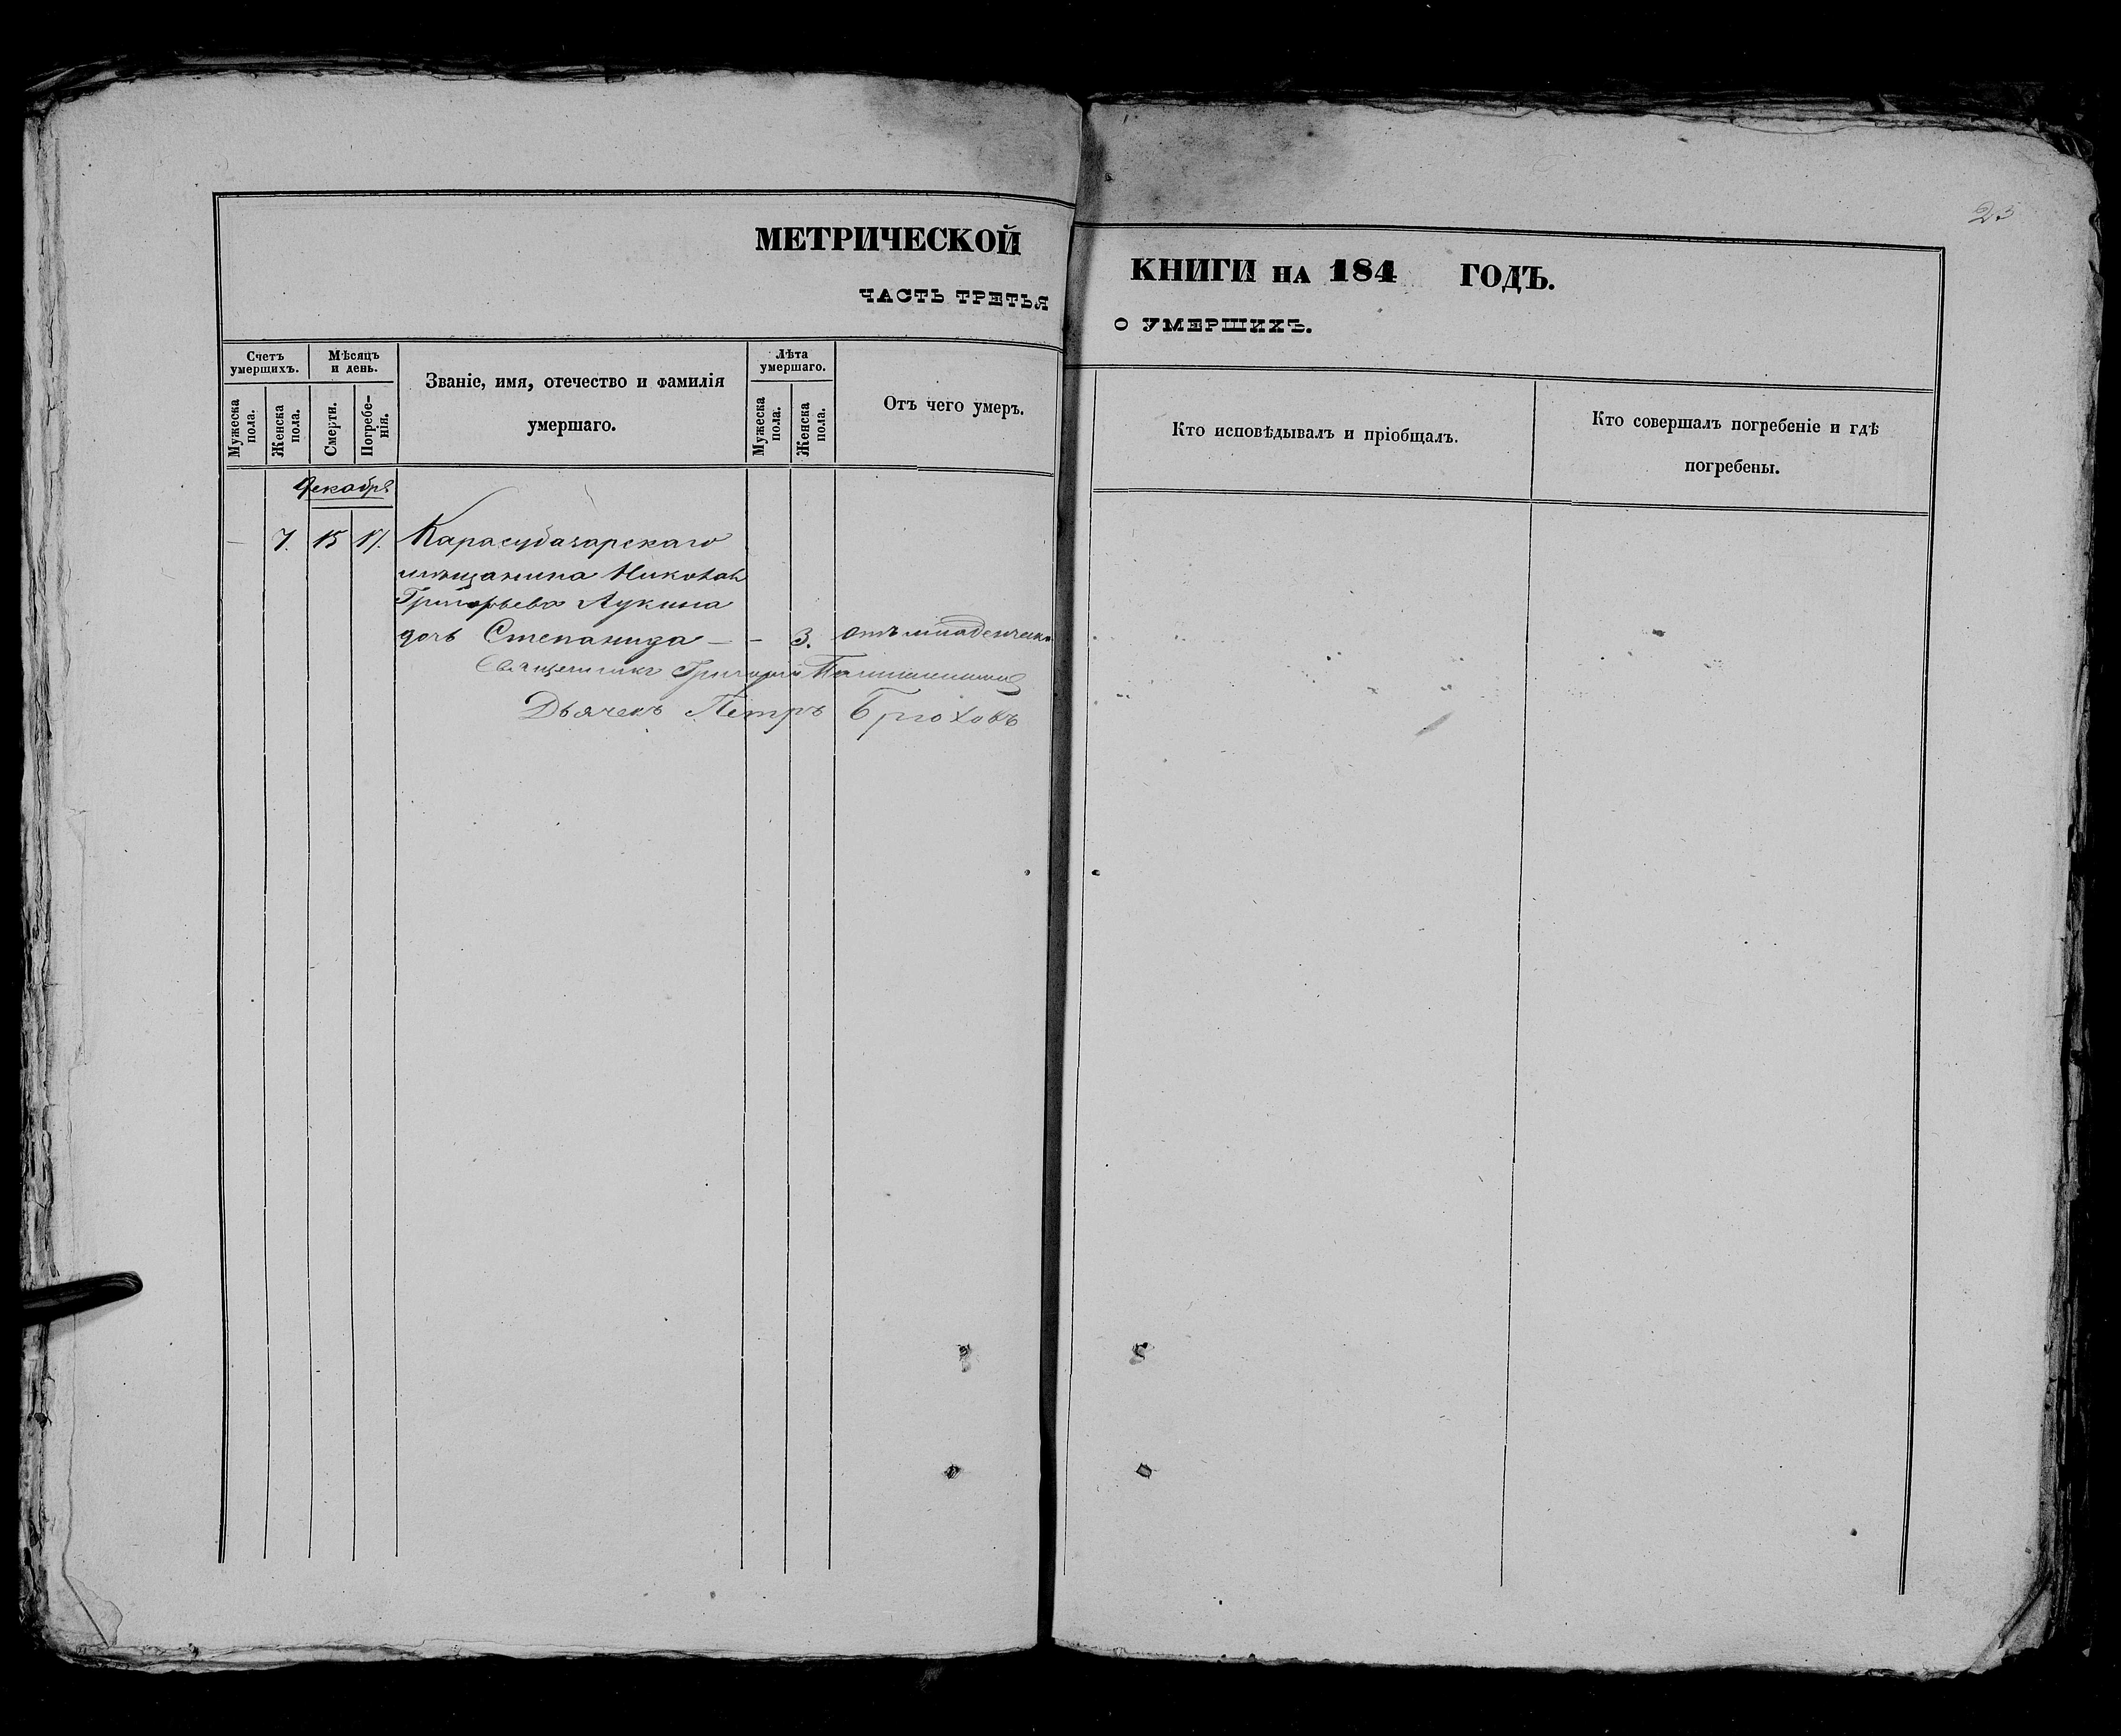 23
МЕТРИЧЕСКОЙ КНИГИ НА 184 ГОДЪ.
ЧАСТЬ ТРЕТЬЯ О УМЕРШИХЪ.
Счетъ умерщихъ.
Мѣсяцъ и день.
Званіе, имя, отечество и фамилія
умершаго.
Лѣта умершаго.
Отъ чего умеръ.
Кто исповѣдывалъ и пріобщалъ.
Кто совершалъ погребеніе и гдѣ
погребены.
Мужеска пола.
Женска пола.
Смерти.
Погребенія.
Мужеска пола.
Женска пола.
Декабрь
— 7. 15 17. Карасубазарскаго
мѣщанина Николая
Григорьева Лукина
дочь Степанида — – 3. отъ младенческ
Священникъ Григорий
Дьячекъ Петръ Брюховъ